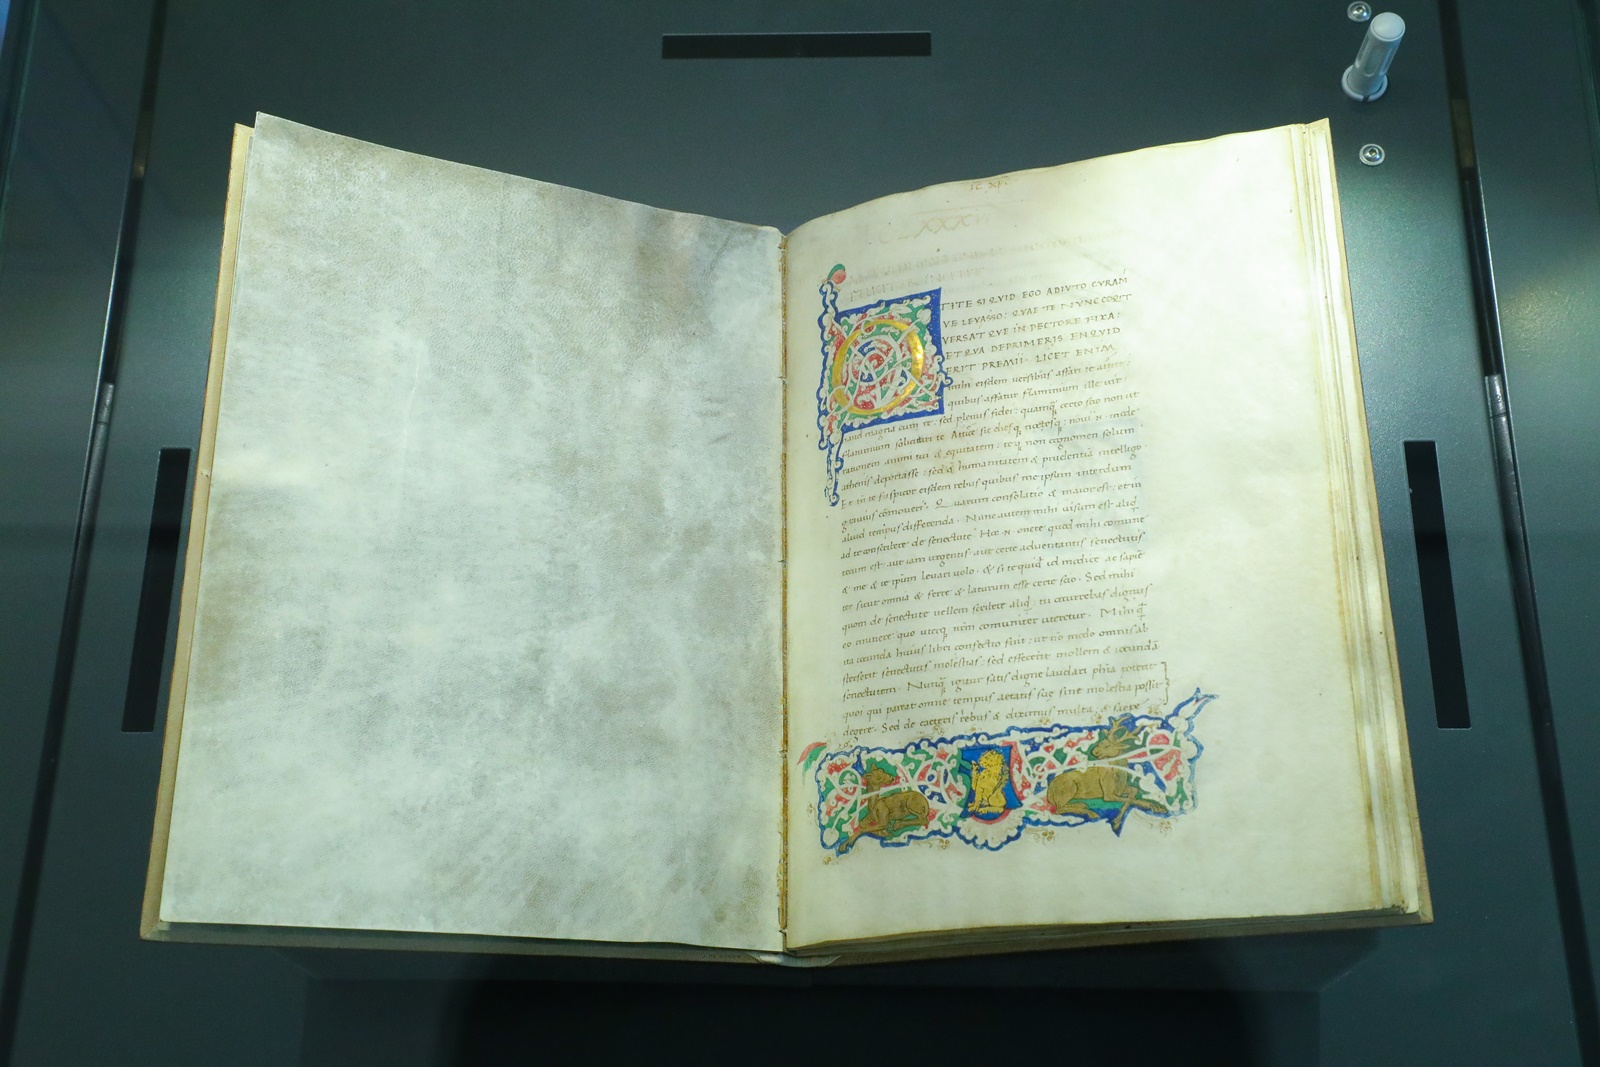 XXX
O TITE SI QVID EGO ADIVTO CVRAM
VE LEVASSO: QVAE TE NVNC COQVIT
VERSAT QVE IN PECTORE FIXA:
ET QVA DEPRIMERIS ENQVID
ERIT PREMII. LICET ENIM
mihi eisdem versibus affari te attice
quibus affatur flaminium ille vir
haud magna cum re: sed plenus fidei: quamq̃ certo scio non ut
flaminium sollicitari te Attice sic diesq̃ noctesq̃: novi n. mode
rationem animi tui & equitatem: teq̃ non cognomen solum
athenis deportasse: sed & humanitatem & prudentiã intelligo.
Et tñ te suspicor eisdem rebus quibus me ipsum interdum
gravius cõmoveri. Quarum consolatio & maior est: et in
aliud tempus differenda. Nunc autem mihi visum est aliq̃
ad te conscribere de senectute. Hoc n. onere quod mihi comune
tecum est: aut iam urgentis aut certe adventantis senectutis
& me & te ipsum levari volo. & si te quidẽ id modice ac sapiẽ
ter sicut omnia & ferre & laturum esse certe scio. Sed mihi
quom de senectute vellem scribere aliqd̃ tu occurrebas dignus
eo munere: quo uterq̃ nrm̃ comuniter uteretur. Mihi q̃
ita iocunda huius libri confectio fuit: ut nõ modo omnis ab
sterserit senectutis molestias: sed effecerit mollem & iocundã
senectutem. Nunq̃ igitur satis digne laudari phĩa poterit
quoi qui pareat omne tempus aetatis sue sine molestia possit
degere. Sed de caeteris rebus & diximus multa: & saepe